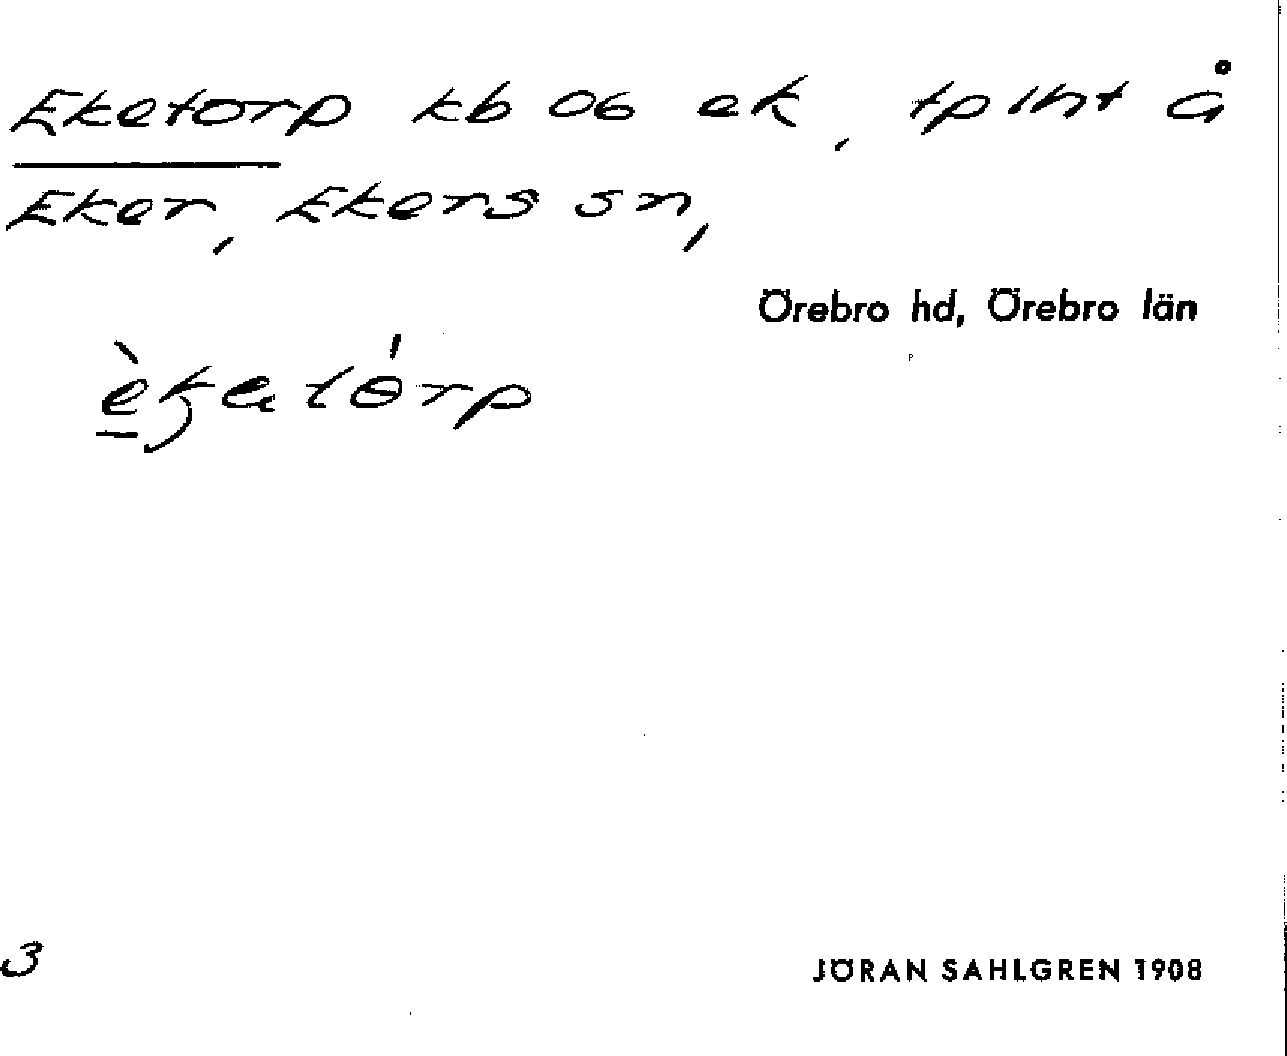 Eketorp kb 06 ek, tp lht å
Eker, Ekers sn,
Örebro hd, Örebro län
3
JÖRAN SAHLGREN 1908